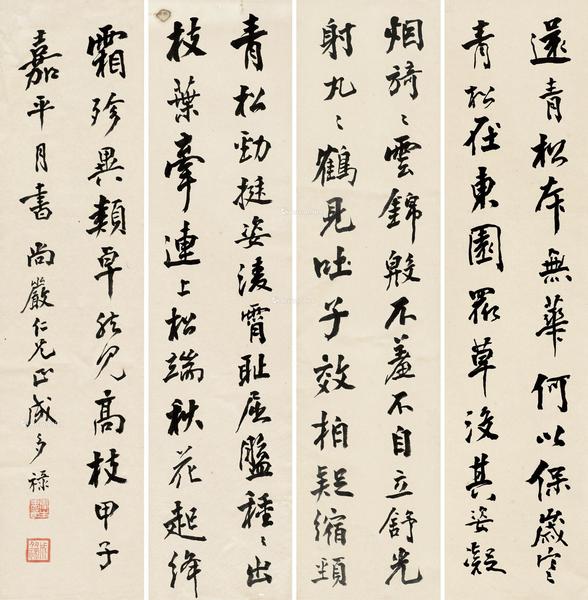 還青松本無華何以保歲寒
青松在東園眾草沒其姿凝
烟旖〻雲錦殷不羞不自立舒光
射丸〻鶴見吐子效柏疑縮頸
青松勁挺姿凌霄恥屈盤種〻出
枝葉牽連上松端秋花起絳
霜殄異類卓然見高枝甲子
嘉平月書尚嚴仁兄正成多祿